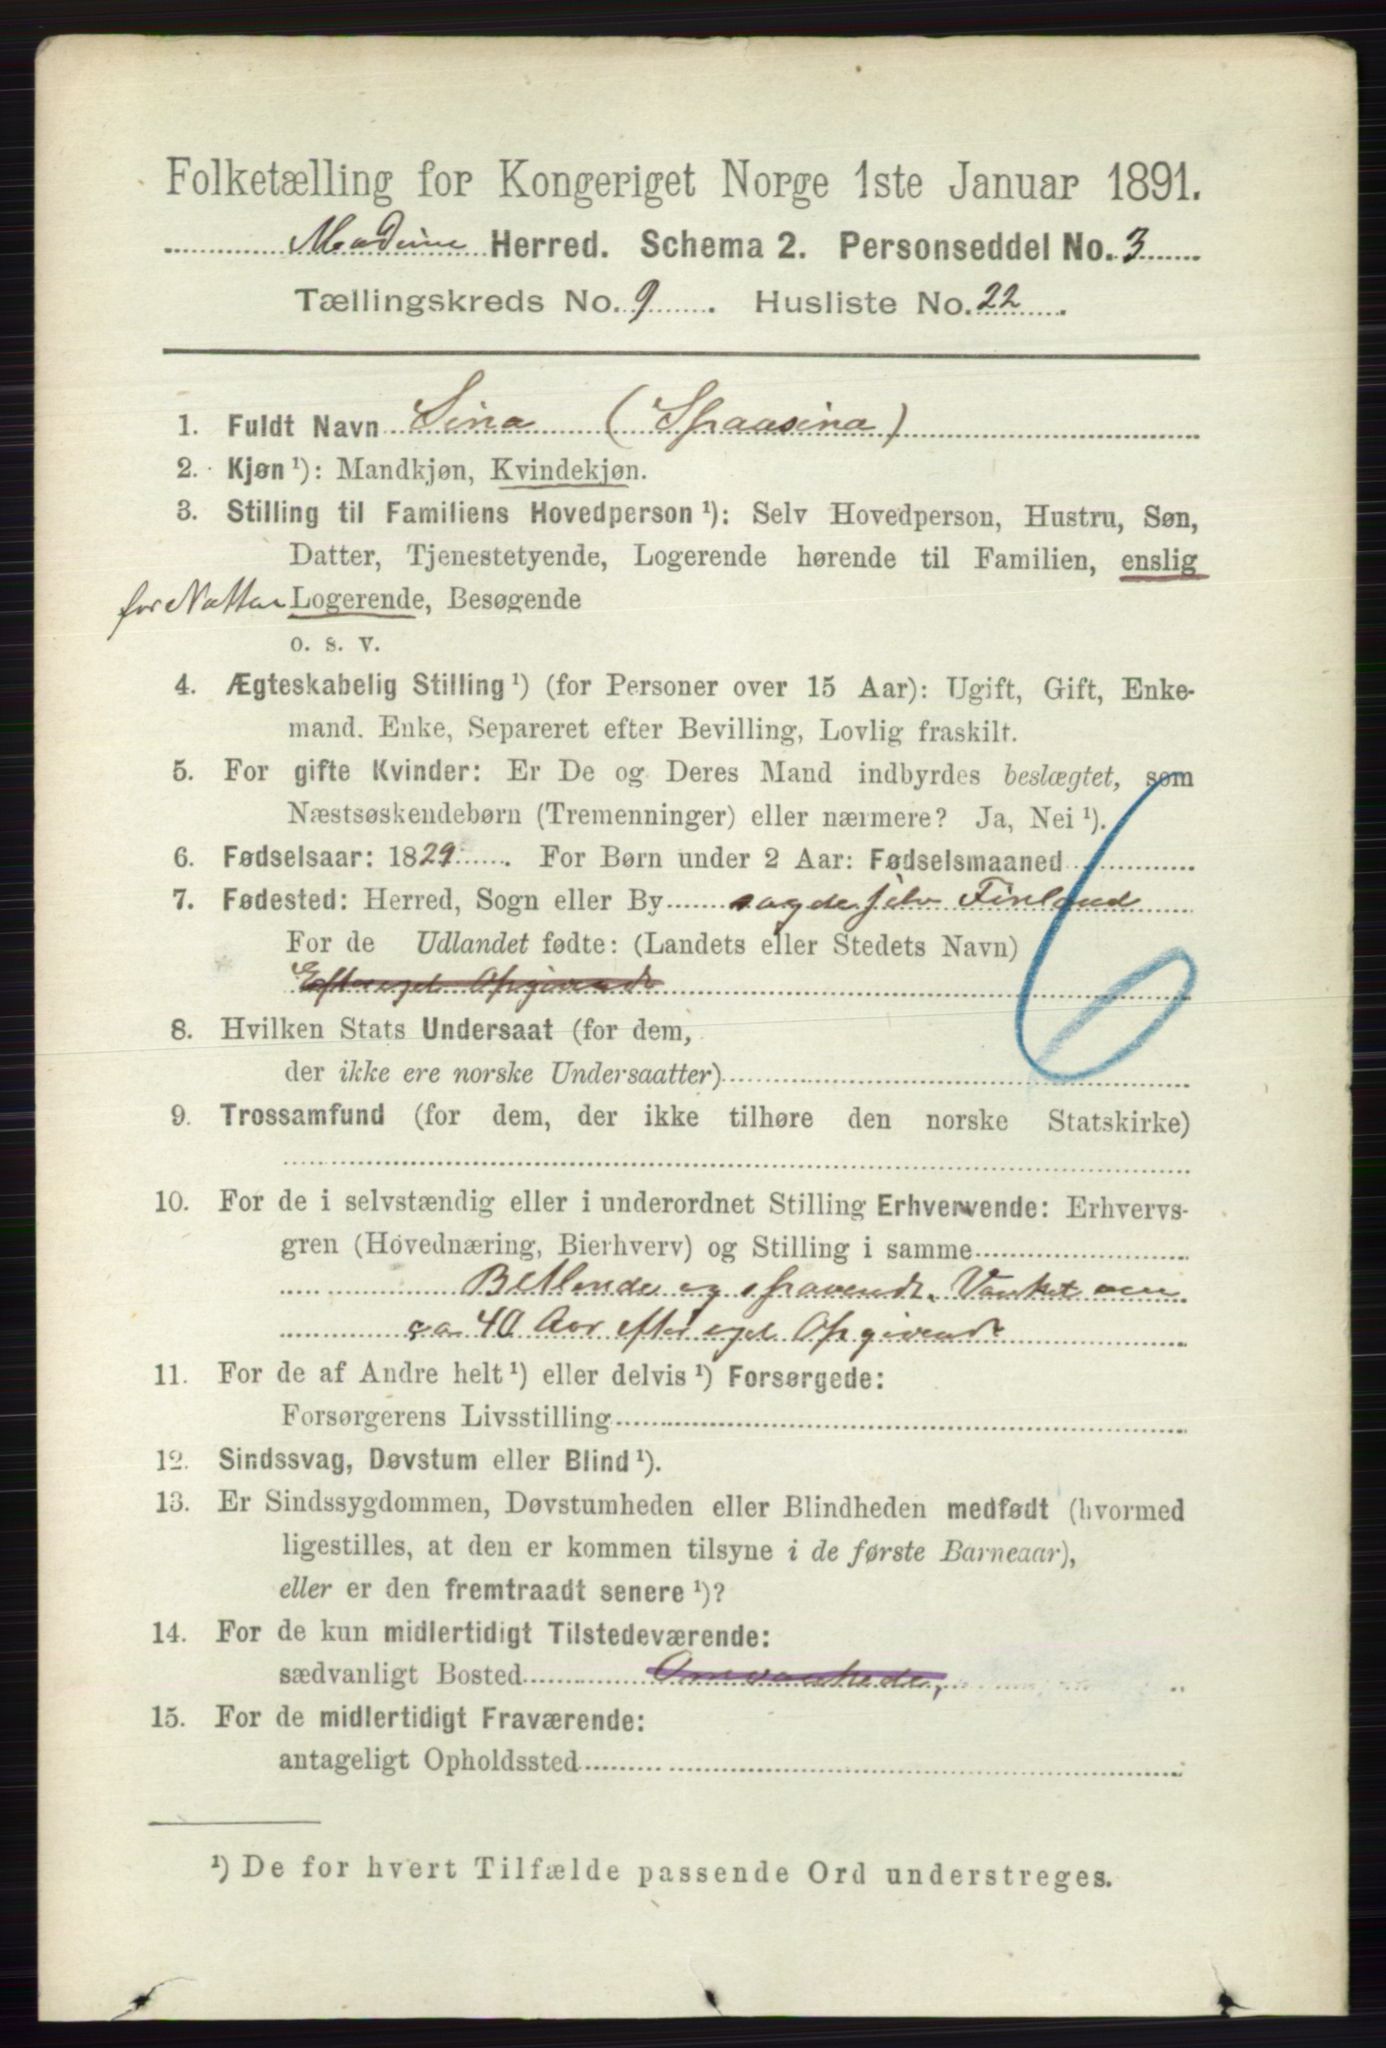 Folketælling for Kongeriget Norge 1ste Januar 1891.
Herred. Schema 2. Personseddel No. 3
Tællingskreds No. 9. Husliste No. 22.
1. Fuldt Navn Sina (Spaasina)
2. Kjøn ¹): Mandkjøn, Kvindekjøn.
3. Stilling til Familiens Hovedperson ¹): Selv Hovedperson, Hustru, Søn,
Datter, Tjenestetyende, Logerende hørende til Familien, enslig
for Natten Logerende, Besøgende
o. s. v.
4. Ægteskabelig Stilling ¹) (for Personer over 15 Aar): Ugift, Gift, Enke-
mand. Enke, Separeret efter Bevilling, Lovlig fraskilt.
5. For gifte Kvinder: Er De og Deres Mand indbyrdes beslægtet, som
Næstsøskendebørn (Tremenninger) eller nærmere? Ja, Nei ¹).
6. Fødselsaar: 1829. For Børn under 2 Aar: Fødselsmaaned
7. Fødested: Herred, Sogn eller By sagde selv Finland
For de Udlandet fødte: (Landets eller Stedets Navn)
Efter eget Opgivende
8. Hvilken Stats Undersaat (for dem,
der ikke ere norske Undersaatter)
9. Trossamfund (for dem, der ikke tilhøre den norske Statskirke)
10. For de i selvstændig eller i underordnet Stilling Erhvervende: Erhvervs-
gren (Hovednæring, Bierhverv) og Stilling i samme
Betlende og spaaende. Vanket om
ca 40 Aar efter eget Opgivende
11. For de af Andre helt ¹) eller delvis ¹) Forsørgede:
Forsørgerens Livsstilling
12. Sindssvag, Døvstum eller Blind ¹).
13. Er Sindssygdommen, Døvstumheden eller Blindheden medfødt (hvormed
ligestilles, at den er kommen tilsyne i de første Barneaar),
eller er den fremtraadt senere ¹)?
14. For de kun midlertidigt Tilstedeværende:
sædvanligt Bosted Omvankede,
15. For de midlertidigt Fraværende:
antageligt Opholdssted
¹) De for hvert Tilfælde passende Ord understreges.